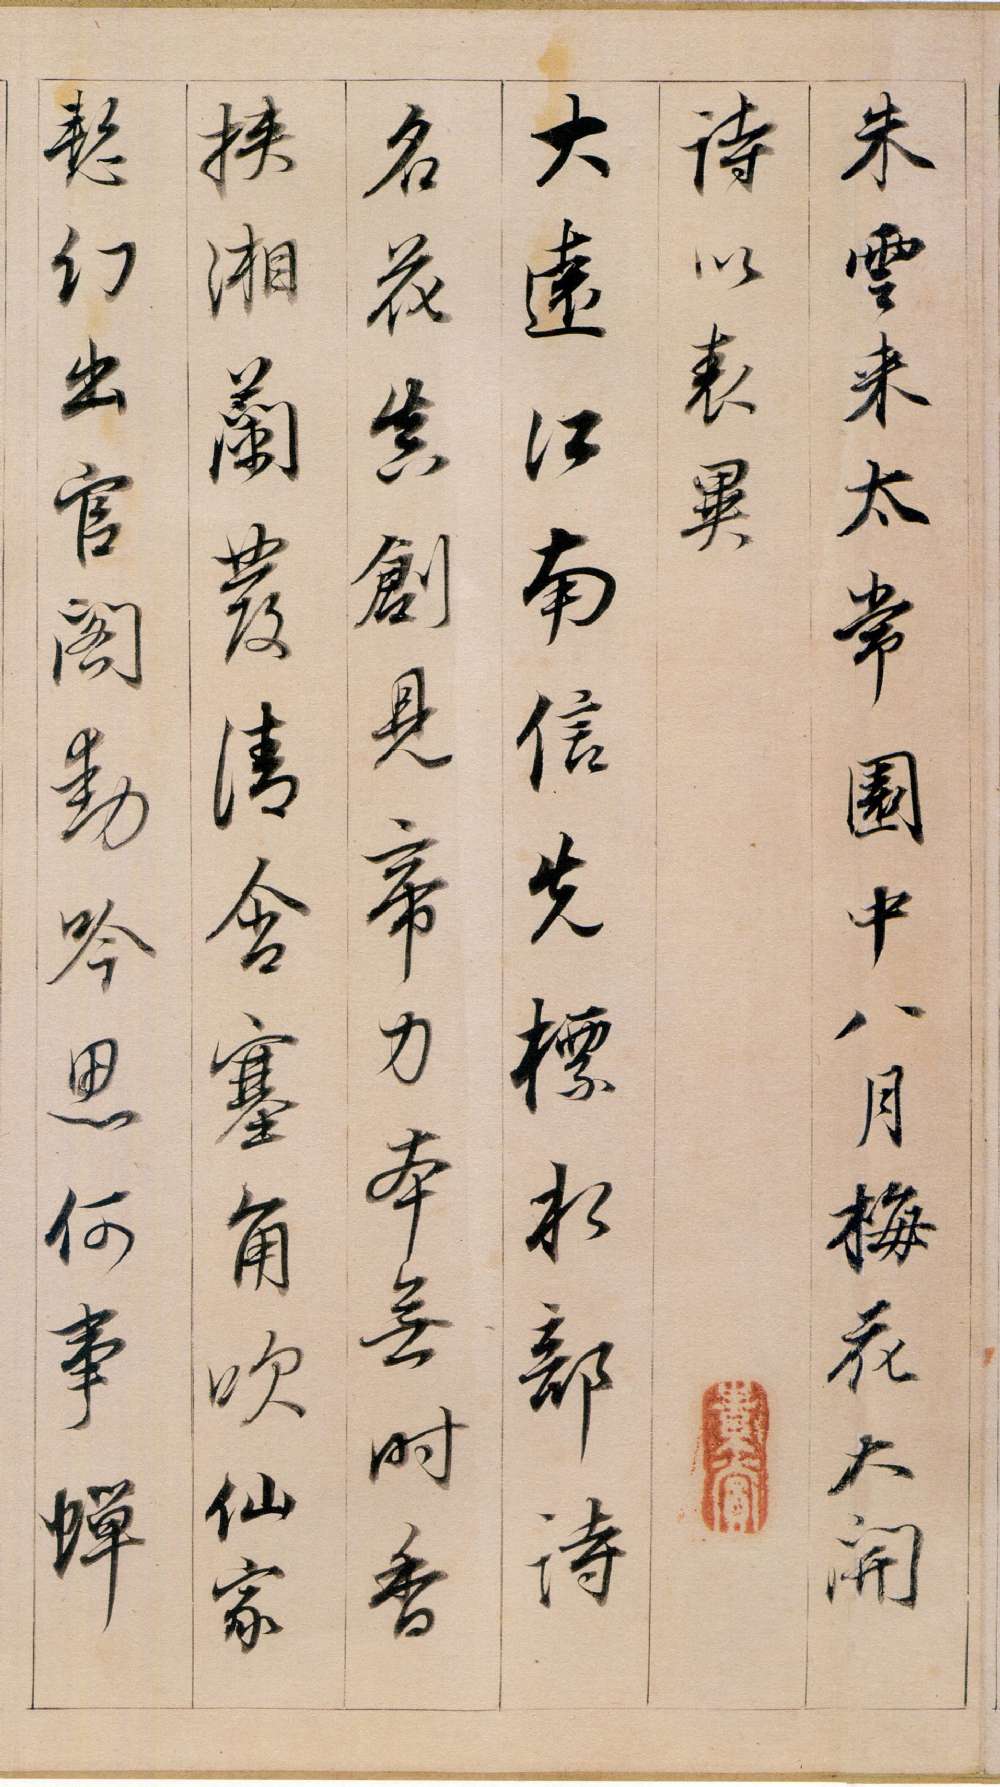 朱雲来太常園中八月梅花大開
詩以表異
大遠江南信先標水部詩
名花真創見帝力本無时香
挾湘蘭發清含塞角吹仙家
愁幻出官閣動吟思何事蟬